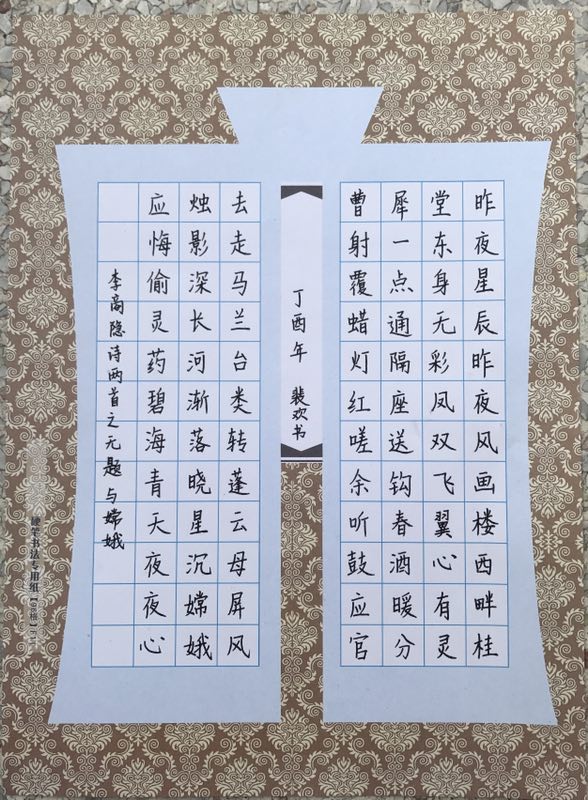 昨夜星辰昨夜风画楼西畔桂
堂东身无彩凤双飞翼心有灵
犀一点通隔座送钩春酒暖分
曹射覆蜡灯红嗟余听鼓应官
丁酉年 裴欢书
去走马兰台类转蓬云母屏风
烛影深长河渐落晓星沉嫦娥
应悔偷灵药碧海青天夜夜心
李商隐诗两首之无题与嫦娥
硬笔书法专用纸